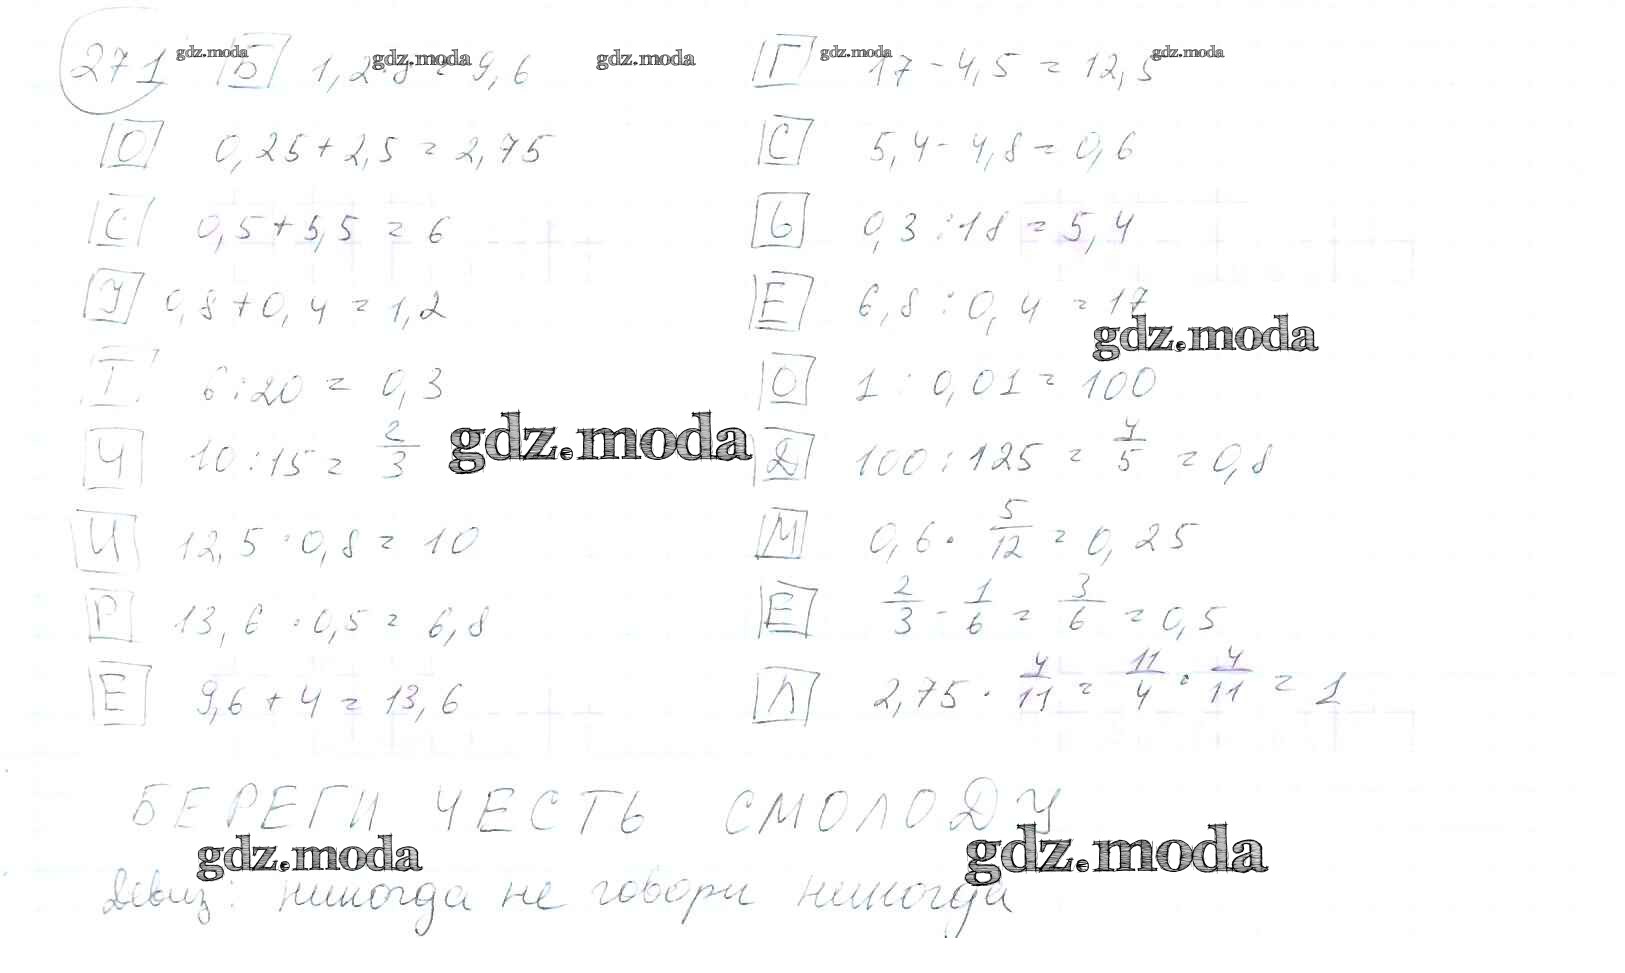 271 Б 1,2·8 = 9,6 Г 17 - 4,5 = 12,5
gdz.moda gdz.moda gdz.moda gdz.moda gdz.moda
О 0,25 + 2,5 = 2,75 С 5,4 - 4,8 = 0,6
С 0,5 + 5,5 = 6 Ь 0,3 : 18 = 5,4
У 0,8 + 0,4 = 1,2 Е 6,8 : 0,4 = 17
gdz.moda
Т 6 : 20 = 0,3 О 1 : 0,01 = 100
Ч 10 : 15 = 2/3 Д 100 : 125 = 4/5 = 0,8
gdz.moda
И 12,5 · 0,8 = 10 М 0,6 · 5/12 = 0,25
Р 13,6 · 0,5 = 6,8 Е 2/3 - 1/6 = 3/6 = 0,5
Е 9,6 + 4 = 13,6 Л 2,75 · 4/11 = 11/4 · 4/11 = 1
БЕРЕГИ ЧЕСТЬ СМОЛОДУ
gdz.moda gdz.moda
Девиз: никогда не говори никогда